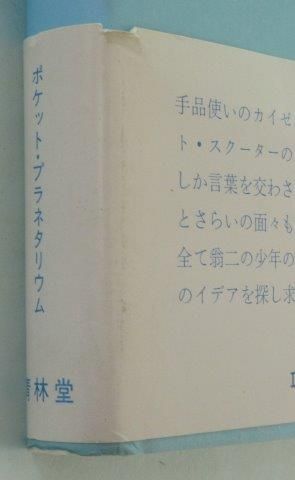 ポケット・プラネタリウム
青林堂
手品使いのカイゼ
ト・スクーターの
しか言葉を交わさ
とさらいの面々も
全て翁二の少年の
のイデアを探し求